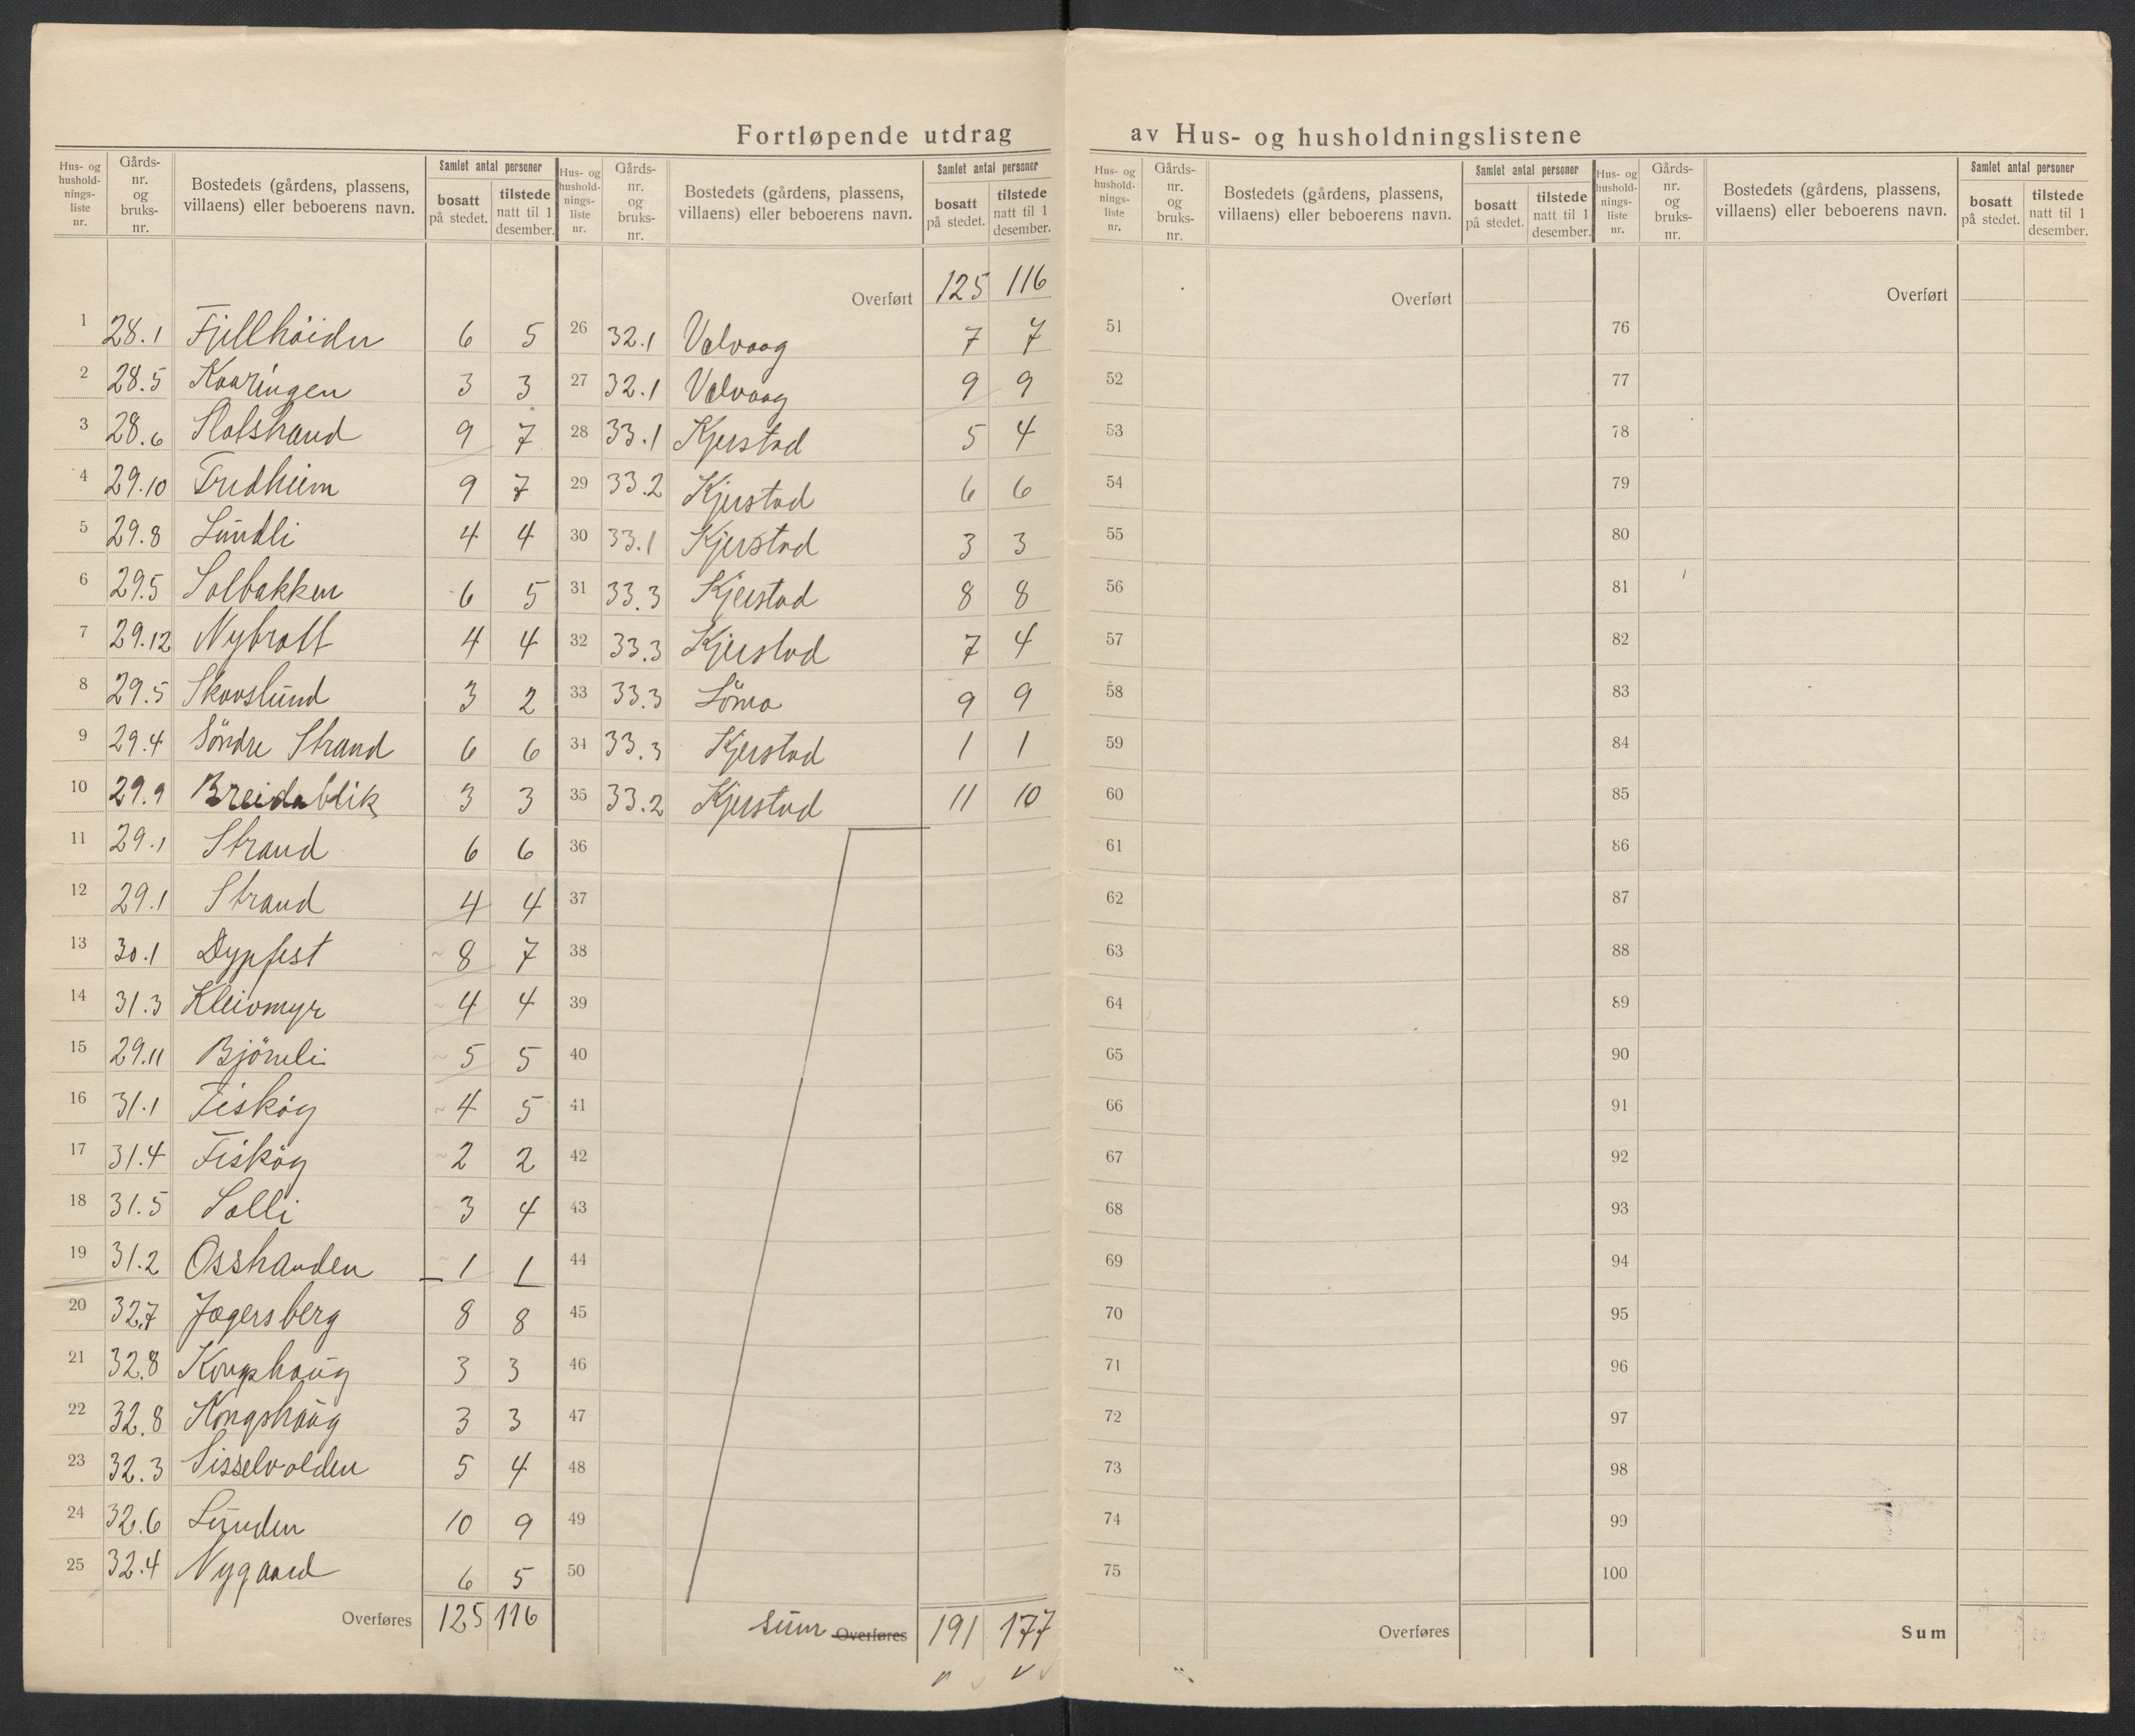 Fortløpende utdrag av Hus- og husholdningslistene
Hus- og husholdnings-liste nr. Gårds-nr. og bruks-nr. Bostedets (gårdens, plassens, villaens) eller beboerens navn. Samlet antal personer bosatt på stedet. tilstede natt til 1 desember.
1 28.1 Fjellhöiden 6 5
2 28.5 Kvaringen 3 3
3 28.6 3 9 7
4 29.10 Fredheim 9 7
5 29.8 Lundli 4 4
6 29.5 Solbakken 6 5
7 29.12 Nybrott 4 4
8 29.5 Skovslund 3 2
9 29.4 Söndre Strand 6 6
10 29.9 Breidablik 3 3
11 29.1 Strand 6 6
12 29.1 Strand 4 4
13 30.1 Dypfest 8 7
14 31.3 Kleivmyr 4 4
15 29.11 Björnli 5 5
16 31.1 Fiskög 4 5
17 31.4 Fiskög 2 2
18 31.5 Solli 3 4
19 31.2 Osstranden 1 1
20 32.7 Jægersberg 8 8
21 32.8 Kongshaug 3 3
22 32.8 Kongshaug 3 3
23 32.3 Sisselvolden 5 4
24 32.6 Lunden 10 9
25 32.4 Nygaard 6 5
Overføres 125 116
Hus- og husholdnings-liste nr. Gårds-nr. og bruks-nr. Bostedets (gårdens, plassens, villaens) eller beboerens navn. Samlet antal personer bosatt på stedet. tilstede natt til 1 desember.
Overført 125 116
26 32.1 Valvaag 7 7
27 32.1 Valvaag 9 9
28 33.1 Kjerstad 5 4
29 33.2 Kjerstad 6 6
30 33.1 Kjerstad 3 3
31 33.3 Kjerstad 8 8
32 33.3 Kjerstad 7 4
33 33.3 Lömo 9 9
34 33.3 Kjerstad 1 1
35 33.2 Kjerstad 11 10
36
37
38
39
40
41
42
43
44
45
46
47
48
49
50
Sum Overføres 191 177
Hus- og husholdnings-liste nr. Gårds-nr. og bruks-nr. Bostedets (gårdens, plassens, villaens) eller beboerens navn. Samlet antal personer bosatt på stedet. tilstede natt til 1 desember.
Overført
51
52
53
54
55
56
57
58
59
60
61
62
63
64
65
66
67
68
69
70
71
72
73
74
75
Overføres
Hus- og husholdnings-liste nr. Gårds-nr. og bruks-nr. Bostedets (gårdens, plassens, villaens) eller beboerens navn. Samlet antal personer bosatt på stedet. tilstede natt til 1 desember.
Overført
76
77
78
79
80
81
82
83
84
85
86
87
88
89
90
91
92
93
94
95
96
97
98
99
100
Sum